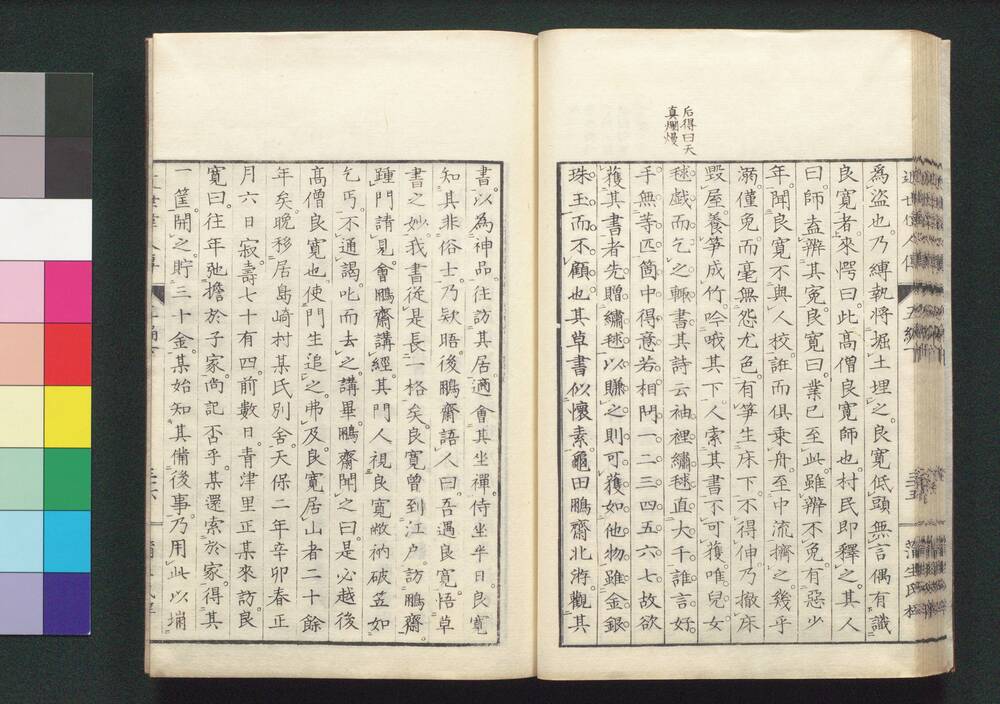 后得曰天
真爛熳
爲盜也乃縛執將堀土埋之良寬低頭無言偶有識
良寬者來愕曰此高僧良寬師也村民即釋之其人
曰師盍辨其冤良寬曰業已至此雖辨不免有惡少
年聞良寬不與人校誑而俱乘舟至中流擠之幾乎
溺僅免而毫無怨尤色有笋生床下不得伸乃撤床
毀屋養笋成竹吟哦其下人索其書不可獲唯兒女
毬戲而乞之輒書其詩云袖裡繡毬直大千誰言好
手無等匹箇中得意若相問一二三四五六七故欲
獲其書者先贈繡毬以賺之則可獲如他物雖金銀
珠玉而不顧也其草書似懷素龜田鵬齋北游觀其
書以為神品往訪其居適會其坐禪侍坐半日良寬
知其非俗士乃欵晤後鵬齋語人曰吾遇良寬悟草
書之妙我書從是長一格矣良寬曾到江户訪鵬齋
踵門請見會鵬齋講經其門人視良寬敝衲破笠如
乞丐不通謁叱而去之講畢鵬齋聞之曰是必越後
高僧良寬也使門生追之弗及良寬居山者二十餘
年矣晚移居島崎村某氏別舍天保二年辛卯春正
月六日寂壽七十有四前數日青津里正某來訪良
寬曰往年弛擔於子家尚記否乎某還索於家得其
一筐開之貯三十金某始知其備後事乃用此以堋